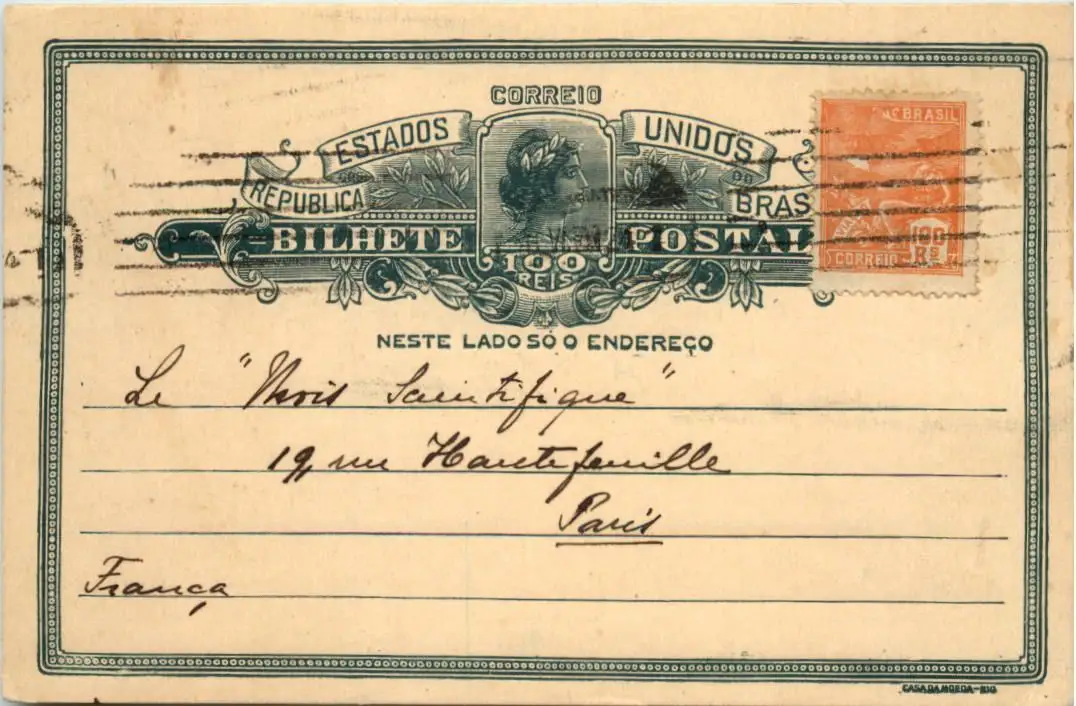 CORREIO
REPUBLICA ESTADOS UNIDOS DO BRAS
BILHETE POSTAL
100
REIS
DO BRASIL
CORREIO
NESTE LADO SÓ O ENDEREÇO
Le "Mois Scientifique"
19, rue Hautefeuille
Paris
França
CASA DA MOEDA-RIO